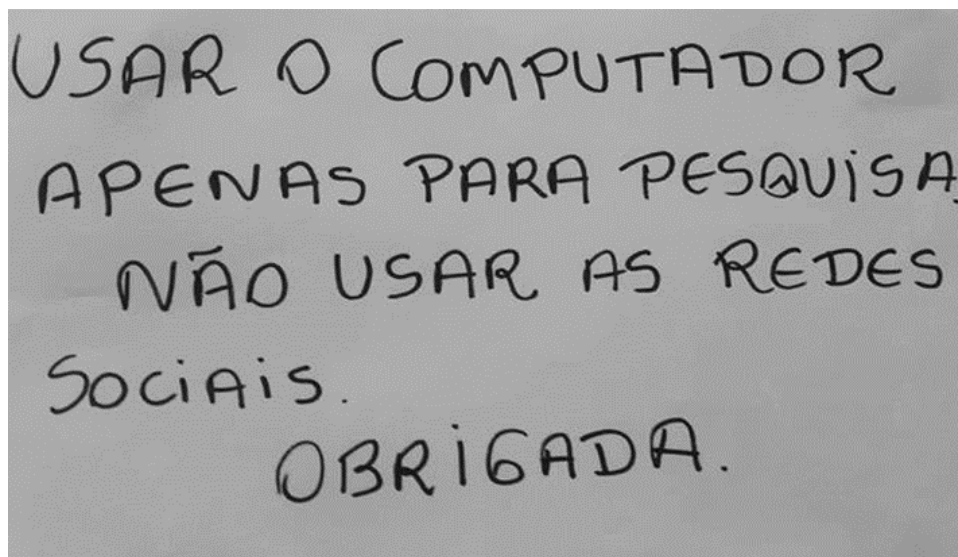 USAR O COMPUTADOR
APENAS PARA PESQUISA,
NÃO USAR AS REDES
SOCIAIS.
OBRIGADA.